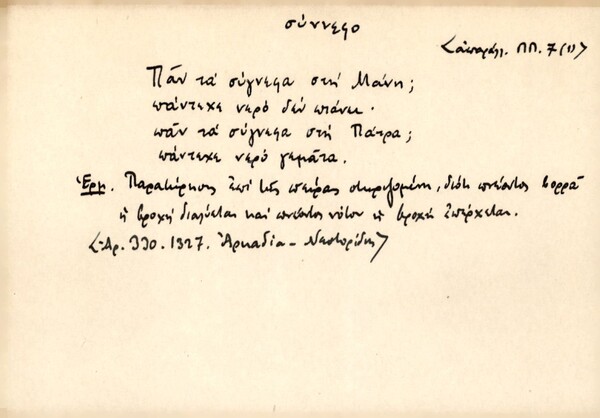 σύννεφο
<ἀπαράλ. ΠΠ. 7(1)>
Πᾶν τά σύγνεφα στή Μάνη;
πάντεχε νερό δέν πιάνει.
πᾶν τά σύγνεφα στή Πάτρα;
πάντεχε νερό γεμᾶτα.
Ἑρμ. Παρατήρησις ἐπί τῆς πείρας στηριζομένη, διότι πνέοντος βορρᾶ
ἡ βροχή διαλύεται καί πνέοντος νότου ἡ βροχή ἐπέρχεται.
<Ἀρ. 330. 1327. Ἀρκαδία - Νεστορίδης>